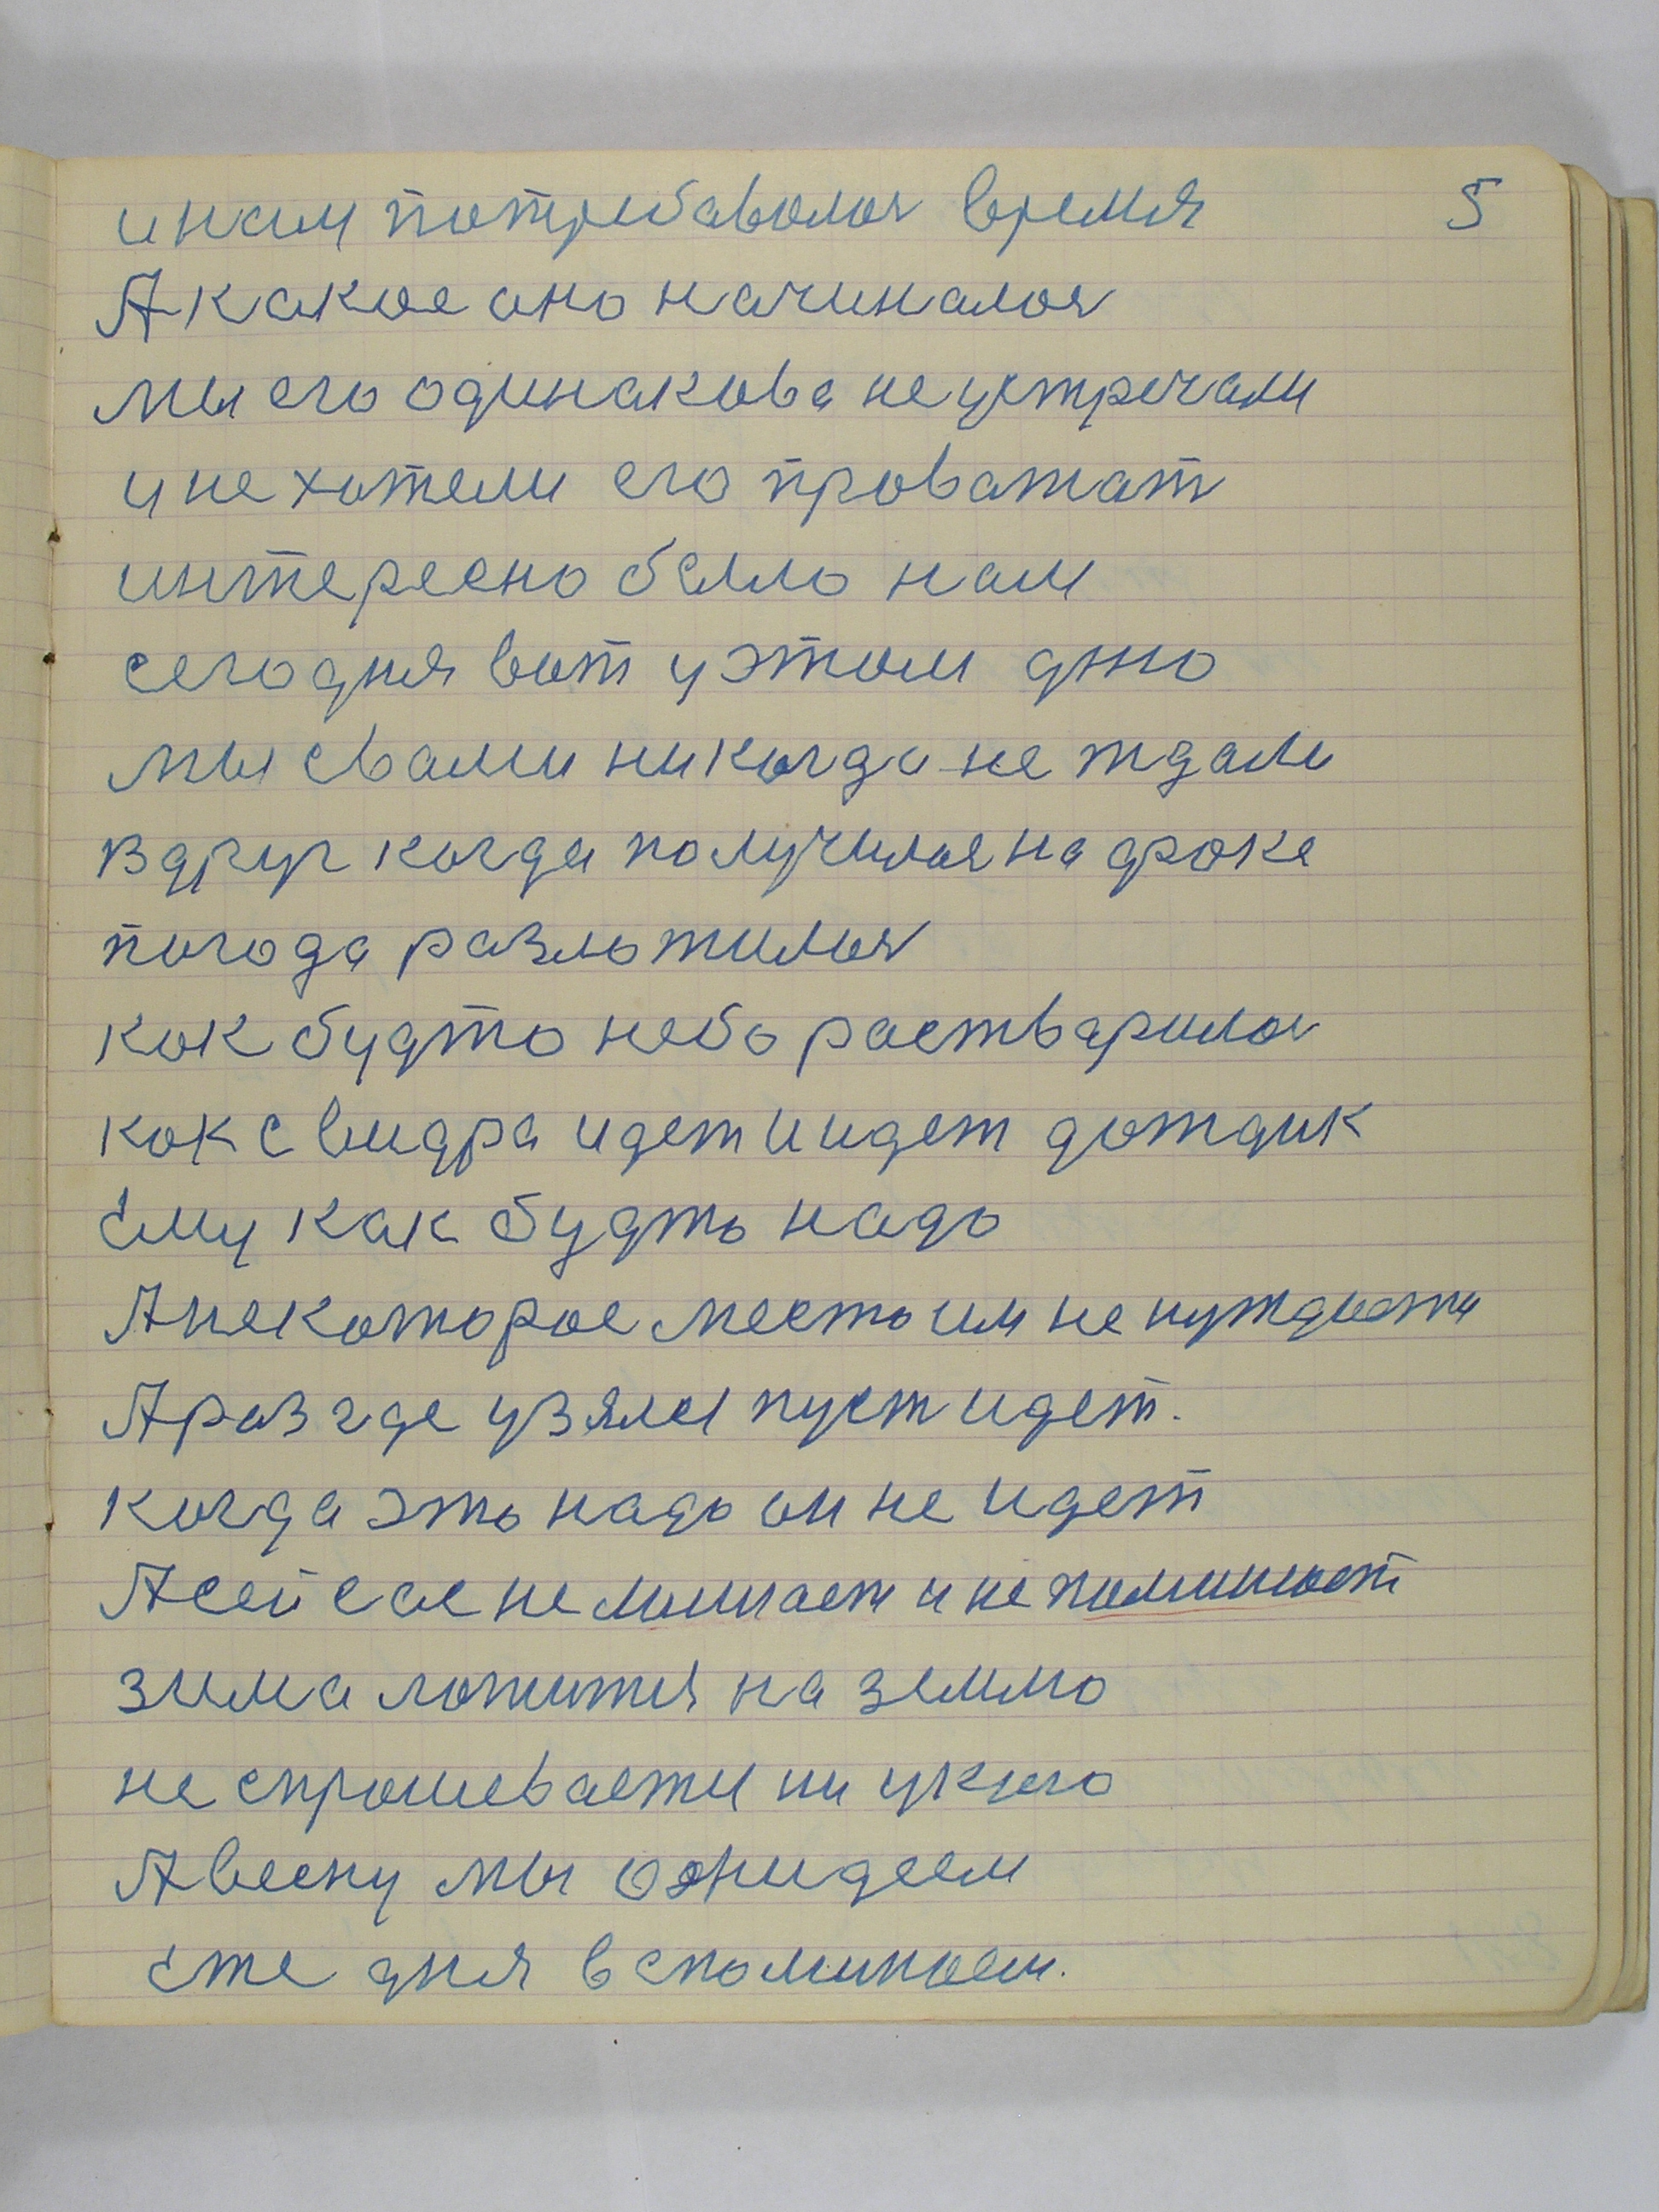 и нам потребаволоя время 5
А какое оно начиналоя
мы его одинакова не устречали
и не хотели его проважат
интересно было нам
сегодня вот у этом дню
мы свами никогда не ждали
вдруг когда получилоя на дроке
погода разложилоя
как будто небо растварилоя
как с видра идет и идет дождик
ему как будть надо
А некоторое месть им не нуждаетя
А раз где узялсы пуст идет.
когда эть надо он не идет
А сейчас не мишает и не поминает
зима ложитья на землю
не спрошеваеты ни у кого
А весну мы ожидаем
еже дня вспоминаем.